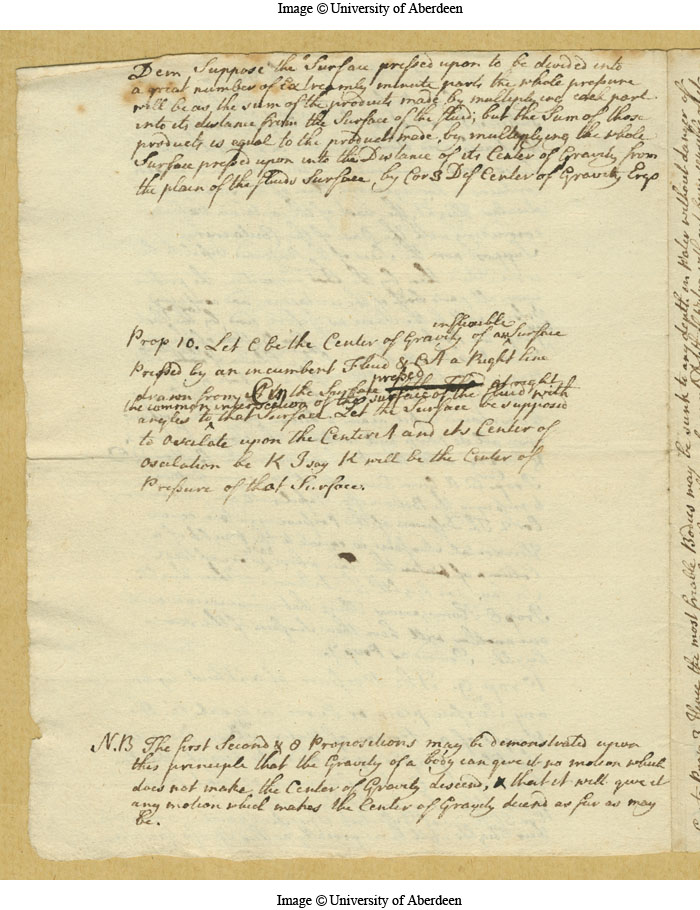 Image © University of Aberdeen
Dem Suppose the Surface pressed upon to be divided into
a great number of Extreamly minute parts the whole pressure
will be as the sum of the products made by multiplying each part
into its distance from the Surface of the fluid; but the Sum of those
products is equal to the products made by multiplying the whole
Surface pressed upon into the Distance of its Center of Gravity from
the plain of the fluids Surface, by Cor 3 Def Center of Gravity Ergo
inflexible
Prop 10. Let C be the Center of Gravity of an Surface
Pressed by an incumbent Fluid & CA a Right line
pressed
drawn from C in the Surface at right
the common intersection of the surface of the fluid with
angles to that Surface. Let the Surface be supposed
to oscilate upon the Center A and its Center of
oscilation be K I say K will be the Center of
Pressure of that Surface.
N.B The first Second & 8 Propositions may be demonstrated upon
this principle that the Gravity of a body can give it no motion which
does not make the Center of Gravity descend, & that it will give it
any motion which makes the Center of Gravity decend as far as may
be.
the most friable Bodies may be sunk to any depth in Water without danger of
Image © University of Aberdeen